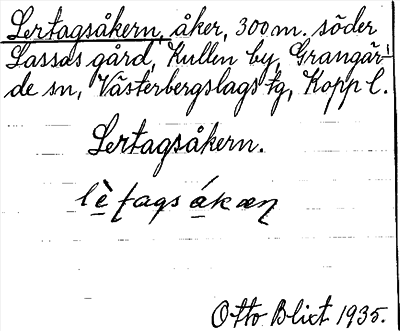 Lertagsåkern, åker, 300 m. söder
Lassas gård, Kullen by, Grangär-
de sn, Västerbergslags tg, Kopp l.
Lertagsåkern.
Otto Blixt 1935.